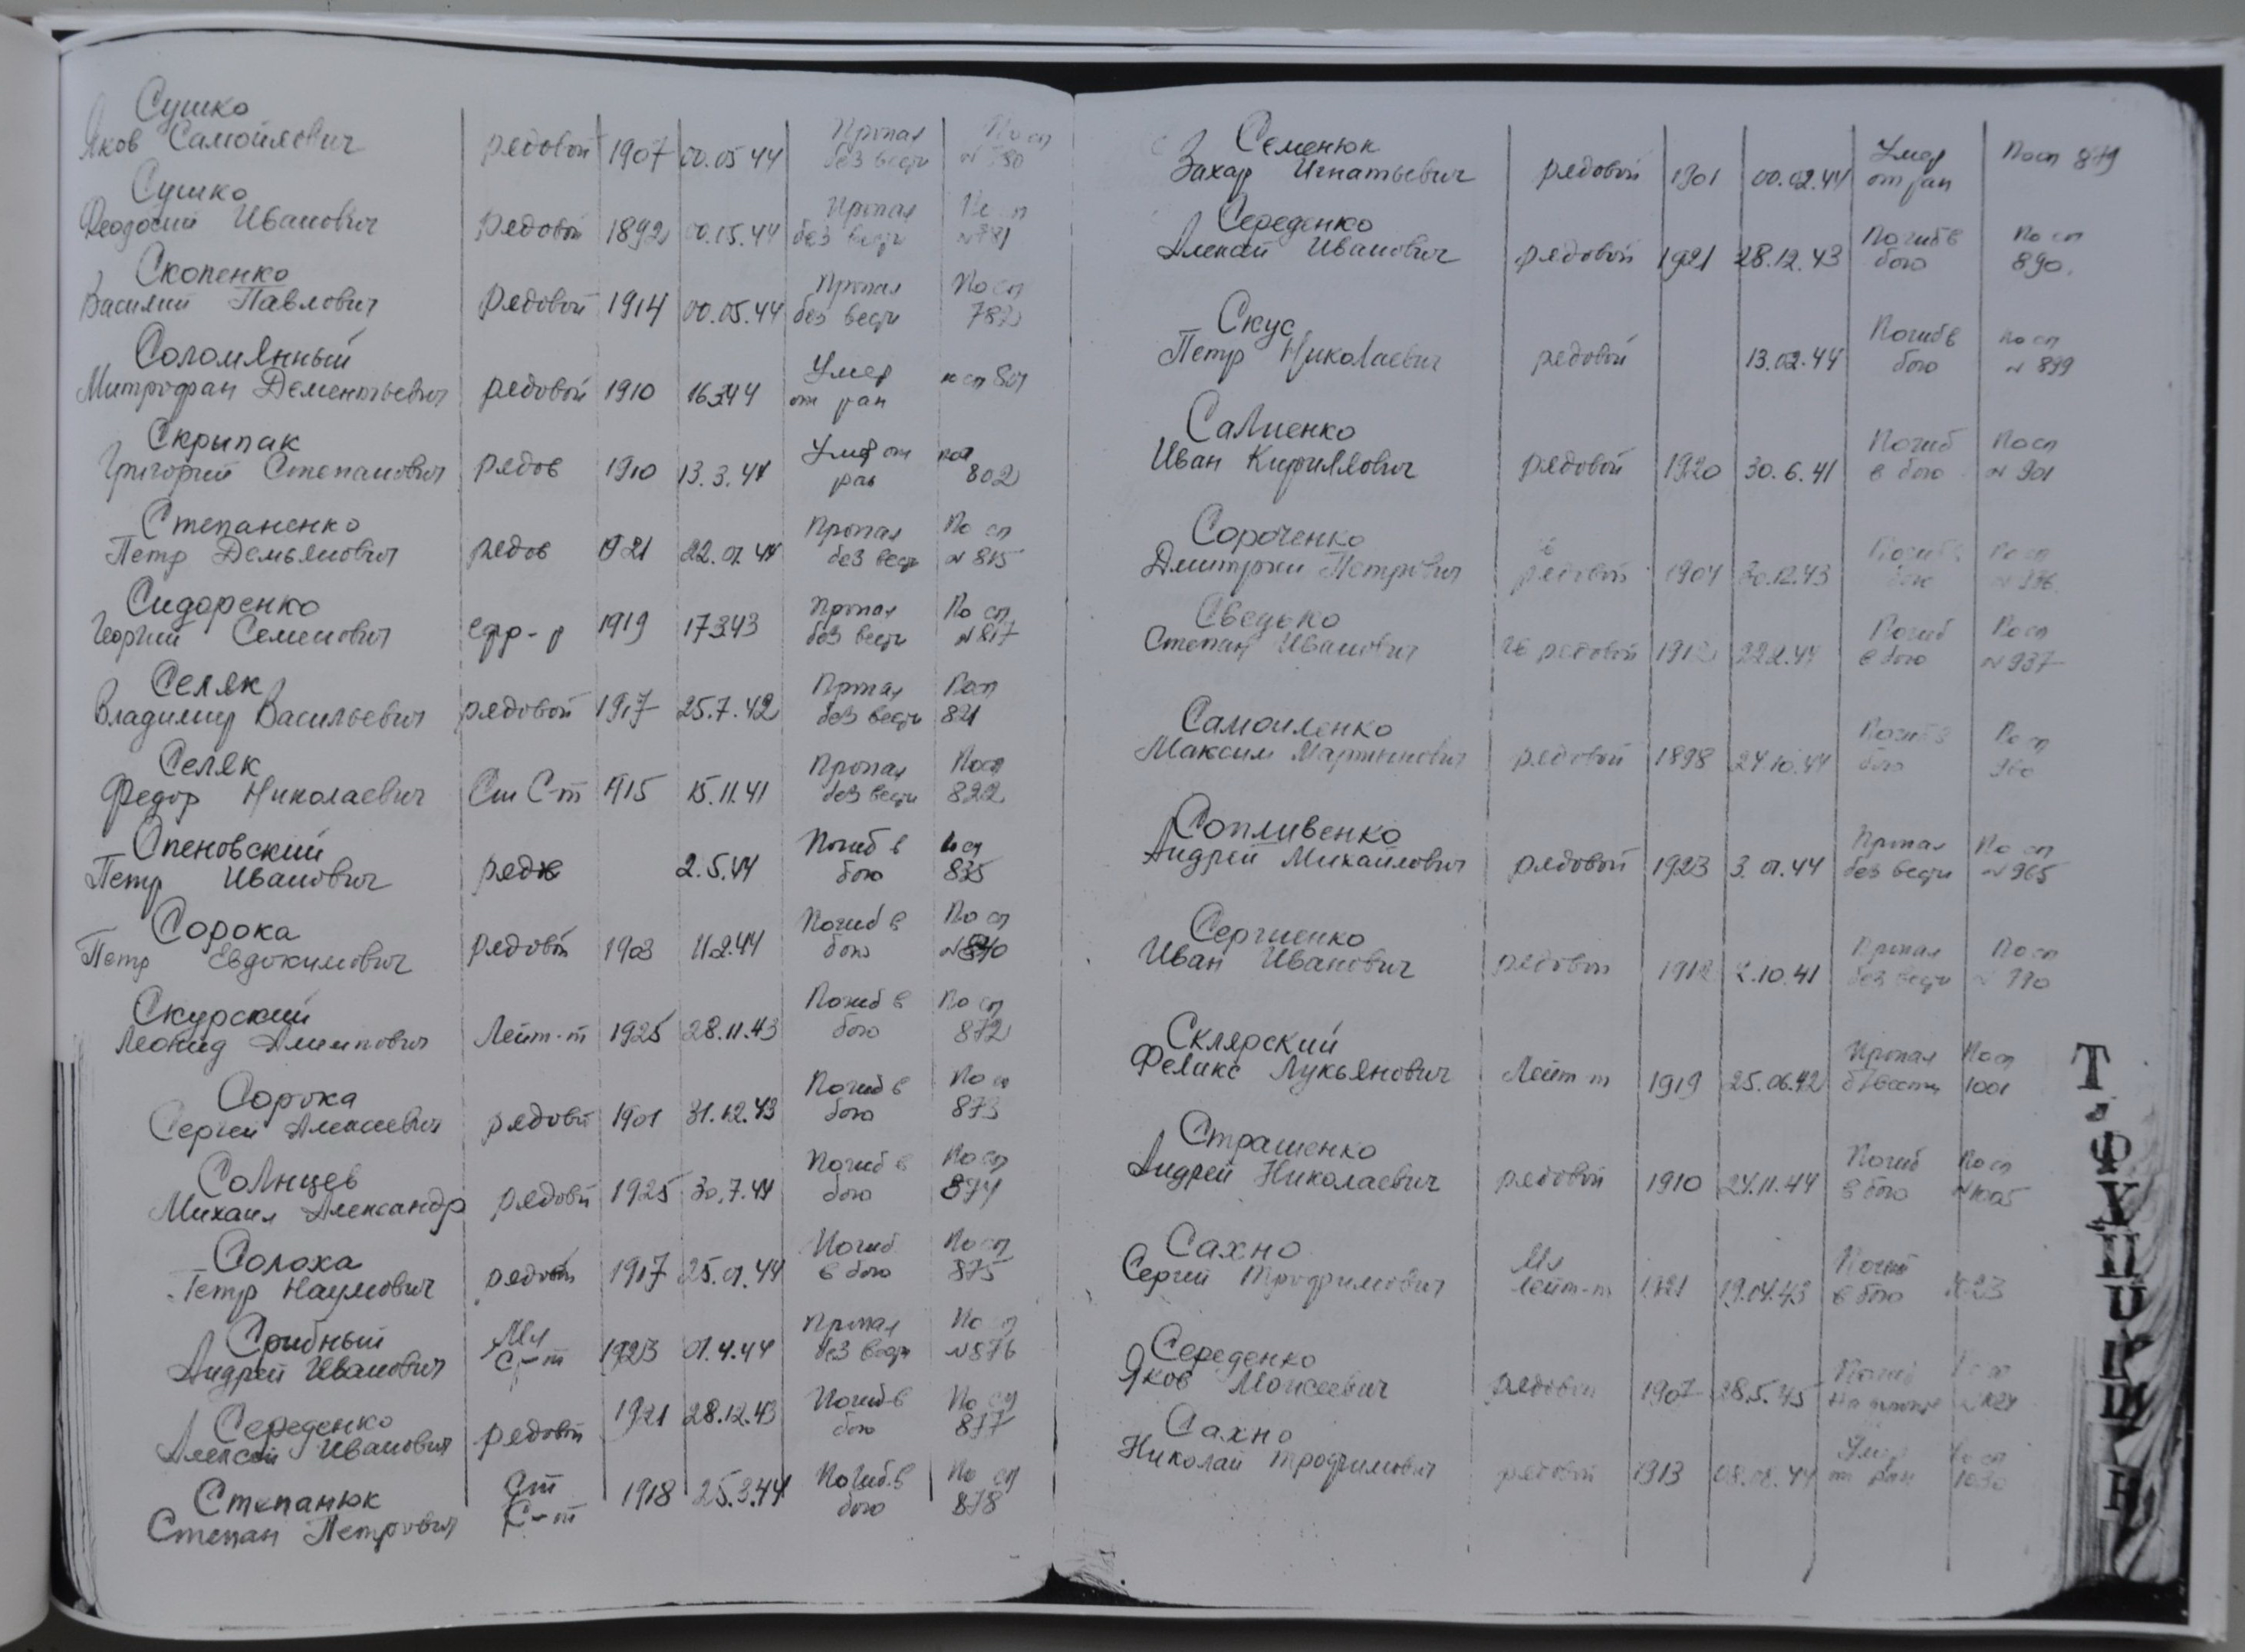 Сушко
Яков Самойлович рядовой 1907 00.05 44 Пропал без вести По сп
Сушко
Феодосий Иванович рядовой 1892 00.05.44 Пропал без вести По сп №781
Скопенко
Василий Павлович рядовой 1914 00.05.44 Пропал без вести По сп 782
Соломянный
Митрофан Дементьевич рядовой 1910 16.3.44 Умер от ран
Скрыпак
Григорий Степанович рядов 1910 13.3.44 Умер от ран 802
Степаненко
Петр Демьянович рядов 1921 22.01.44 Пропал без вести По сп №815
Сидоренко
Георгий Семенович ефр-р 1919 17.3.43 Пропал без вести По сп №817
Селяк
Владимир Васильевич рядовой 1917 25.7.42 Пропал без вести По сп 821
Селяк
Федор Николаевич Ст С-т 1915 15.11.41 Пропал без вести По сп 822
Опеновский
Петр Иванович 2.5.44 Погиб в бою 835
Сорока
Петр Евдокимович рядовой 1903 11.2.44 Погиб в бою По сп
Скурский
Леонид Лейт-т 1925 28.11.43 Погиб в бою По сп 872
Сорока
Сергей Алексеевич рядовой 1901 31.12.43 Погиб в бою По сп 873
Солнцев
Михаил Александр рядовой 1925 30.7.44 Погиб в бою По сп 874
Солоха
Петр Наумович рядовой 1917 25.01.44 Погиб в бою По сп 875
Срибный
Андрей Иванович Мл С-т 1923 01.4.44 Пропал без вести По сп №876
Середенко
Алексей Иванович рядовой 1921 28.12.43 Погиб в бою По сп 877
Степанюк
Степан Петрович Ст С-т 1918 25.3.44 Погиб в бою По сп 878
Семенюк
Захар Игнатьевич рядовой 1901 00.02.44 Умер от ран По сп 879
Середенко
Алексей Иванович рядовой 1921 28.12.43 Погиб в бою По сп 890.
Скус
Петр Николаевич рядовой 13.02.44 Погиб в бою По сп № 899
Салиенко
Иван Кириллович рядовой 1920 30.6.41 Погиб в бою По сп № 901
Сороченко
Дмитрий Петрович рядовой 1904 30.12.43 Погиб в бою По сп
Сведько
Степан Иванович рядовой 22.2.44 Погиб в бою По сп №937
Самоиленко
Максим Мартинович рядовой 1898 24.10.44 Погиб в бою По сп 960
Сопливенко
Андрей Михайлович рядовой 1923 3.01.44 Пропал без вести По сп №965
Сергиенко
Иван Иванович рядовой 1912 2.10.41 Пропал без вести По сп
Склярский
Феликс Лукьянович Лейт-т 1919 25.06.42 Пропал По сп 1001
Страшенко
Андрей Николаевич рядовой 1910 24.11.44 Погиб в бою По сп №1005
Сахно
Сергий Трофимович Мл лейт-т 1921 19.04.43 Погиб в бою
Середенко
Яков Моисеевич рядовой 1907 28.5.45
Сахно
Николай Трофимович рядовой 1913 Умер от ран По сп
Т
Ф
Х
Ц